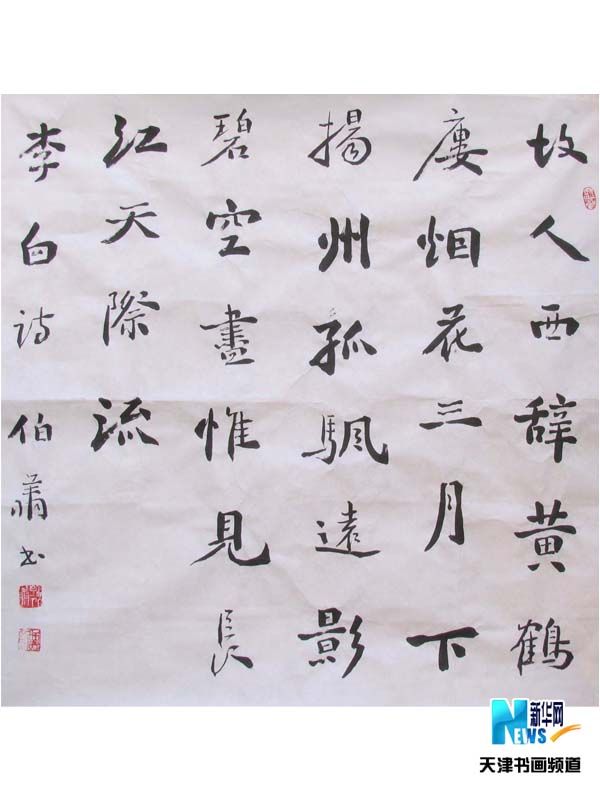 故人西辞黄鶴
廔烟花三月下
揚州孤颿遠影
碧空盡惟見長
江天際流
李白诗 伯萧书
新华网
NEWS
天津书画频道